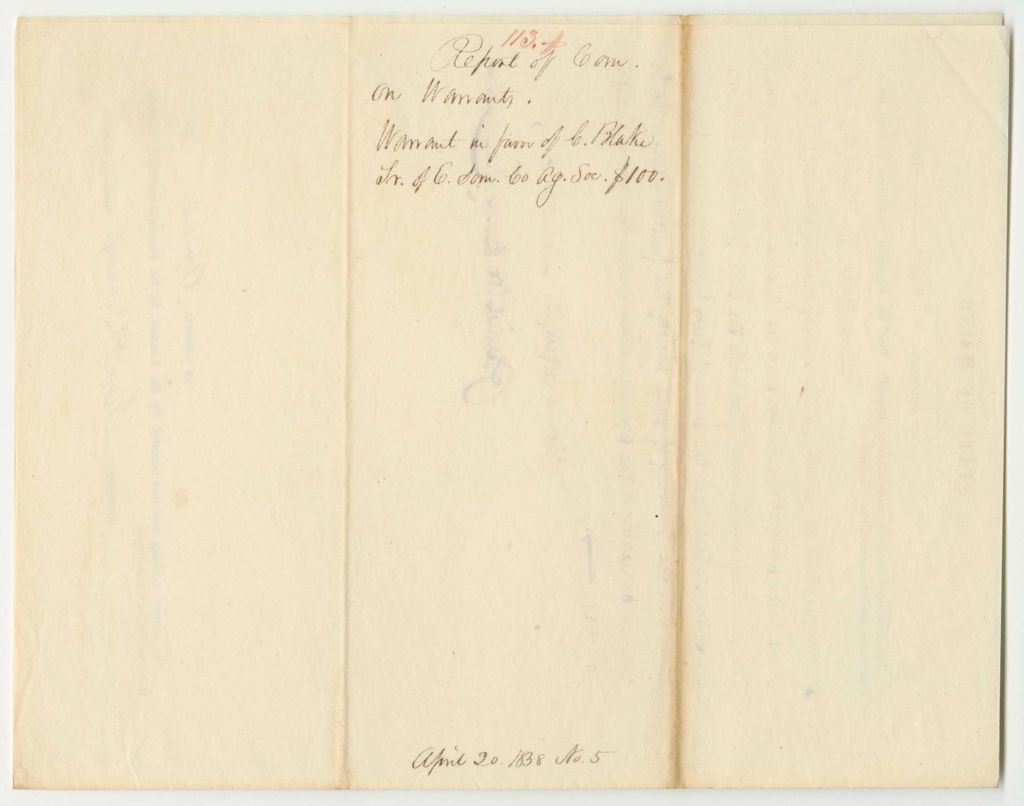 113.
Report of Com.
on Warrants.
Warrant in favor of C. Blake
Tr. of E. Som. Co Ag. Soc. $100.
April 20. 1838 No. 5